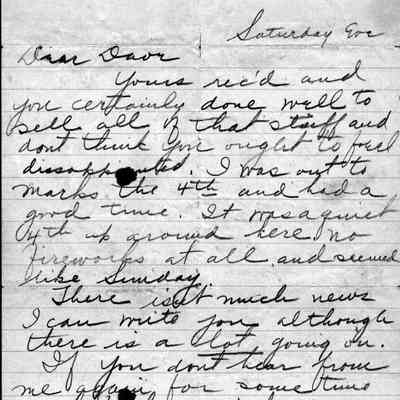 Saturday Eve
Dear Dave
Yours rec'd and
you certainly done well to
sell all of that stuff and
dont think you ought to feel
dissappointed. I was out to
Marks the 4th and had a
good time. It was a quiet
4th up around here no
fireworks at all and seemed
like Sunday.
There isn't much news
I can write you although
there is a lot going on.
If you dont hear from
me again for some time